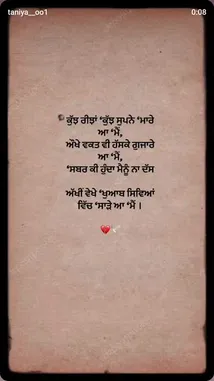 taniya__oo1
0:08
ਕੁੱਝ ਰੀਝਾਂ 'ਕੁੱਝ ਸੁਪਨੇ 'ਮਾਰੇ
ਆ 'ਮੈਂ,
ਔਖੇ ਵਕਤ ਵੀ ਹੱਸਕੇ ਗੁਜਾਰੇ
ਆ 'ਮੈਂ,
'ਸਬਰ ਕੀ ਹੁੰਦਾ ਮੈਨੂੰ ਨਾ ਦੱਸ
ਅੱਖੀਂ ਵੇਖੇ 'ਖੁਆਬ ਸਿਵਿਆਂ
ਵਿੱਚ 'ਸਾੜੇ ਆ 'ਮੈਂ ।